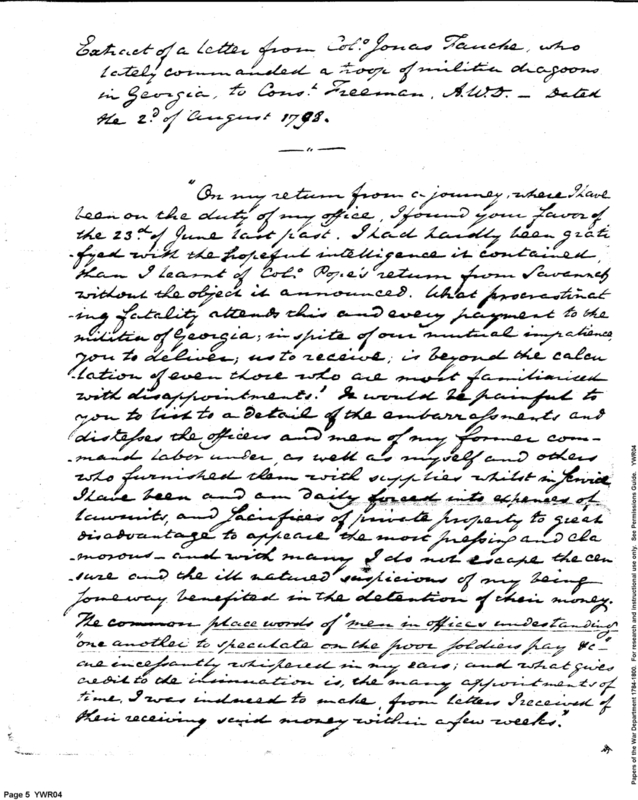 Extract of a letter from Colo. Jonas Fauche, who
lately commanded a troop of militia dragoons
in Georgia, to Const. Freeman, A.W.D. — Dated
the 2d of August 1798.
"On my return from a journey, where I have
been on the duty of my office, I found your favor of
the 23rd of June last past. I had hardly been grati
-fyed with the hopeful intelligence it contained,
than I learnt of Colo. Pope's return from Savannah
without the object it announced. What procrastinat
-ing fatality attends this and every payment to the
militia of Georgia; in spite of our mutual impatience,
you to deliver; us to receive; is beyond the calcu
-lation of even those who are most familiarised
with disappointments! It would be painful to
you to list to a detail of the embarrassments and
distesses the officers and men of my former com-
-mand labor under, as well as myself and others
who furnished them with supplies whilst in service
I have been and am daily forced into expences of
lawsuits, and sacrifices of private property to great
disadvantage to appease the most pressing and cla
-morous — and with many I do not escape the cen
-sure and the ill natured suspicions of my being
some way benefited in the detention of their money.
The common place words of "men in offices understanding
"one another to speculate on the poor soldiers pay &c"
are incessantly whispered in my ears; and what gives
credit to the insinuation is, the many appointments of
time, I was induced to make, from letters I received of
their receiving said money within a few weeks."
Page 5 YWR04
Papers of the War Department 1784-1800. For research and instructional use only. See Permissions Guide. YWR04